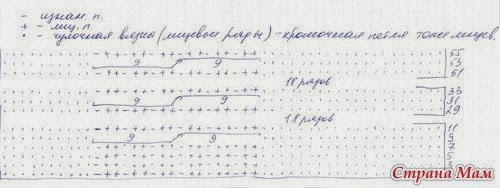 - - изнан. п.
+ - лиц. п.
• - чулочная вязка (лицевые ряды) - кромочная петля тоже лицев.
55
53
9 9
51
18 рядов
33
31
9 9
29
18 рядов
11
9 9
9
7
5
3
Страна Мам